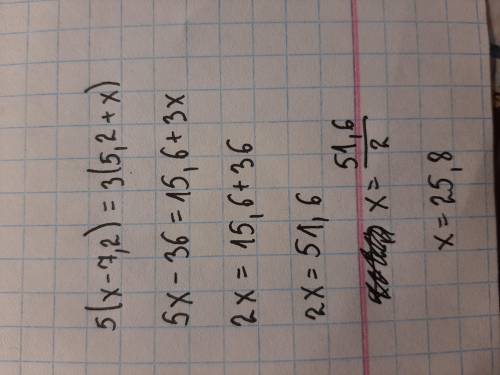 5(x-7,2)=3(5,2+x)
5x-36=15,6+3x
2x=15,6+36
2x=51,6
x=51,6/2
x=25,8